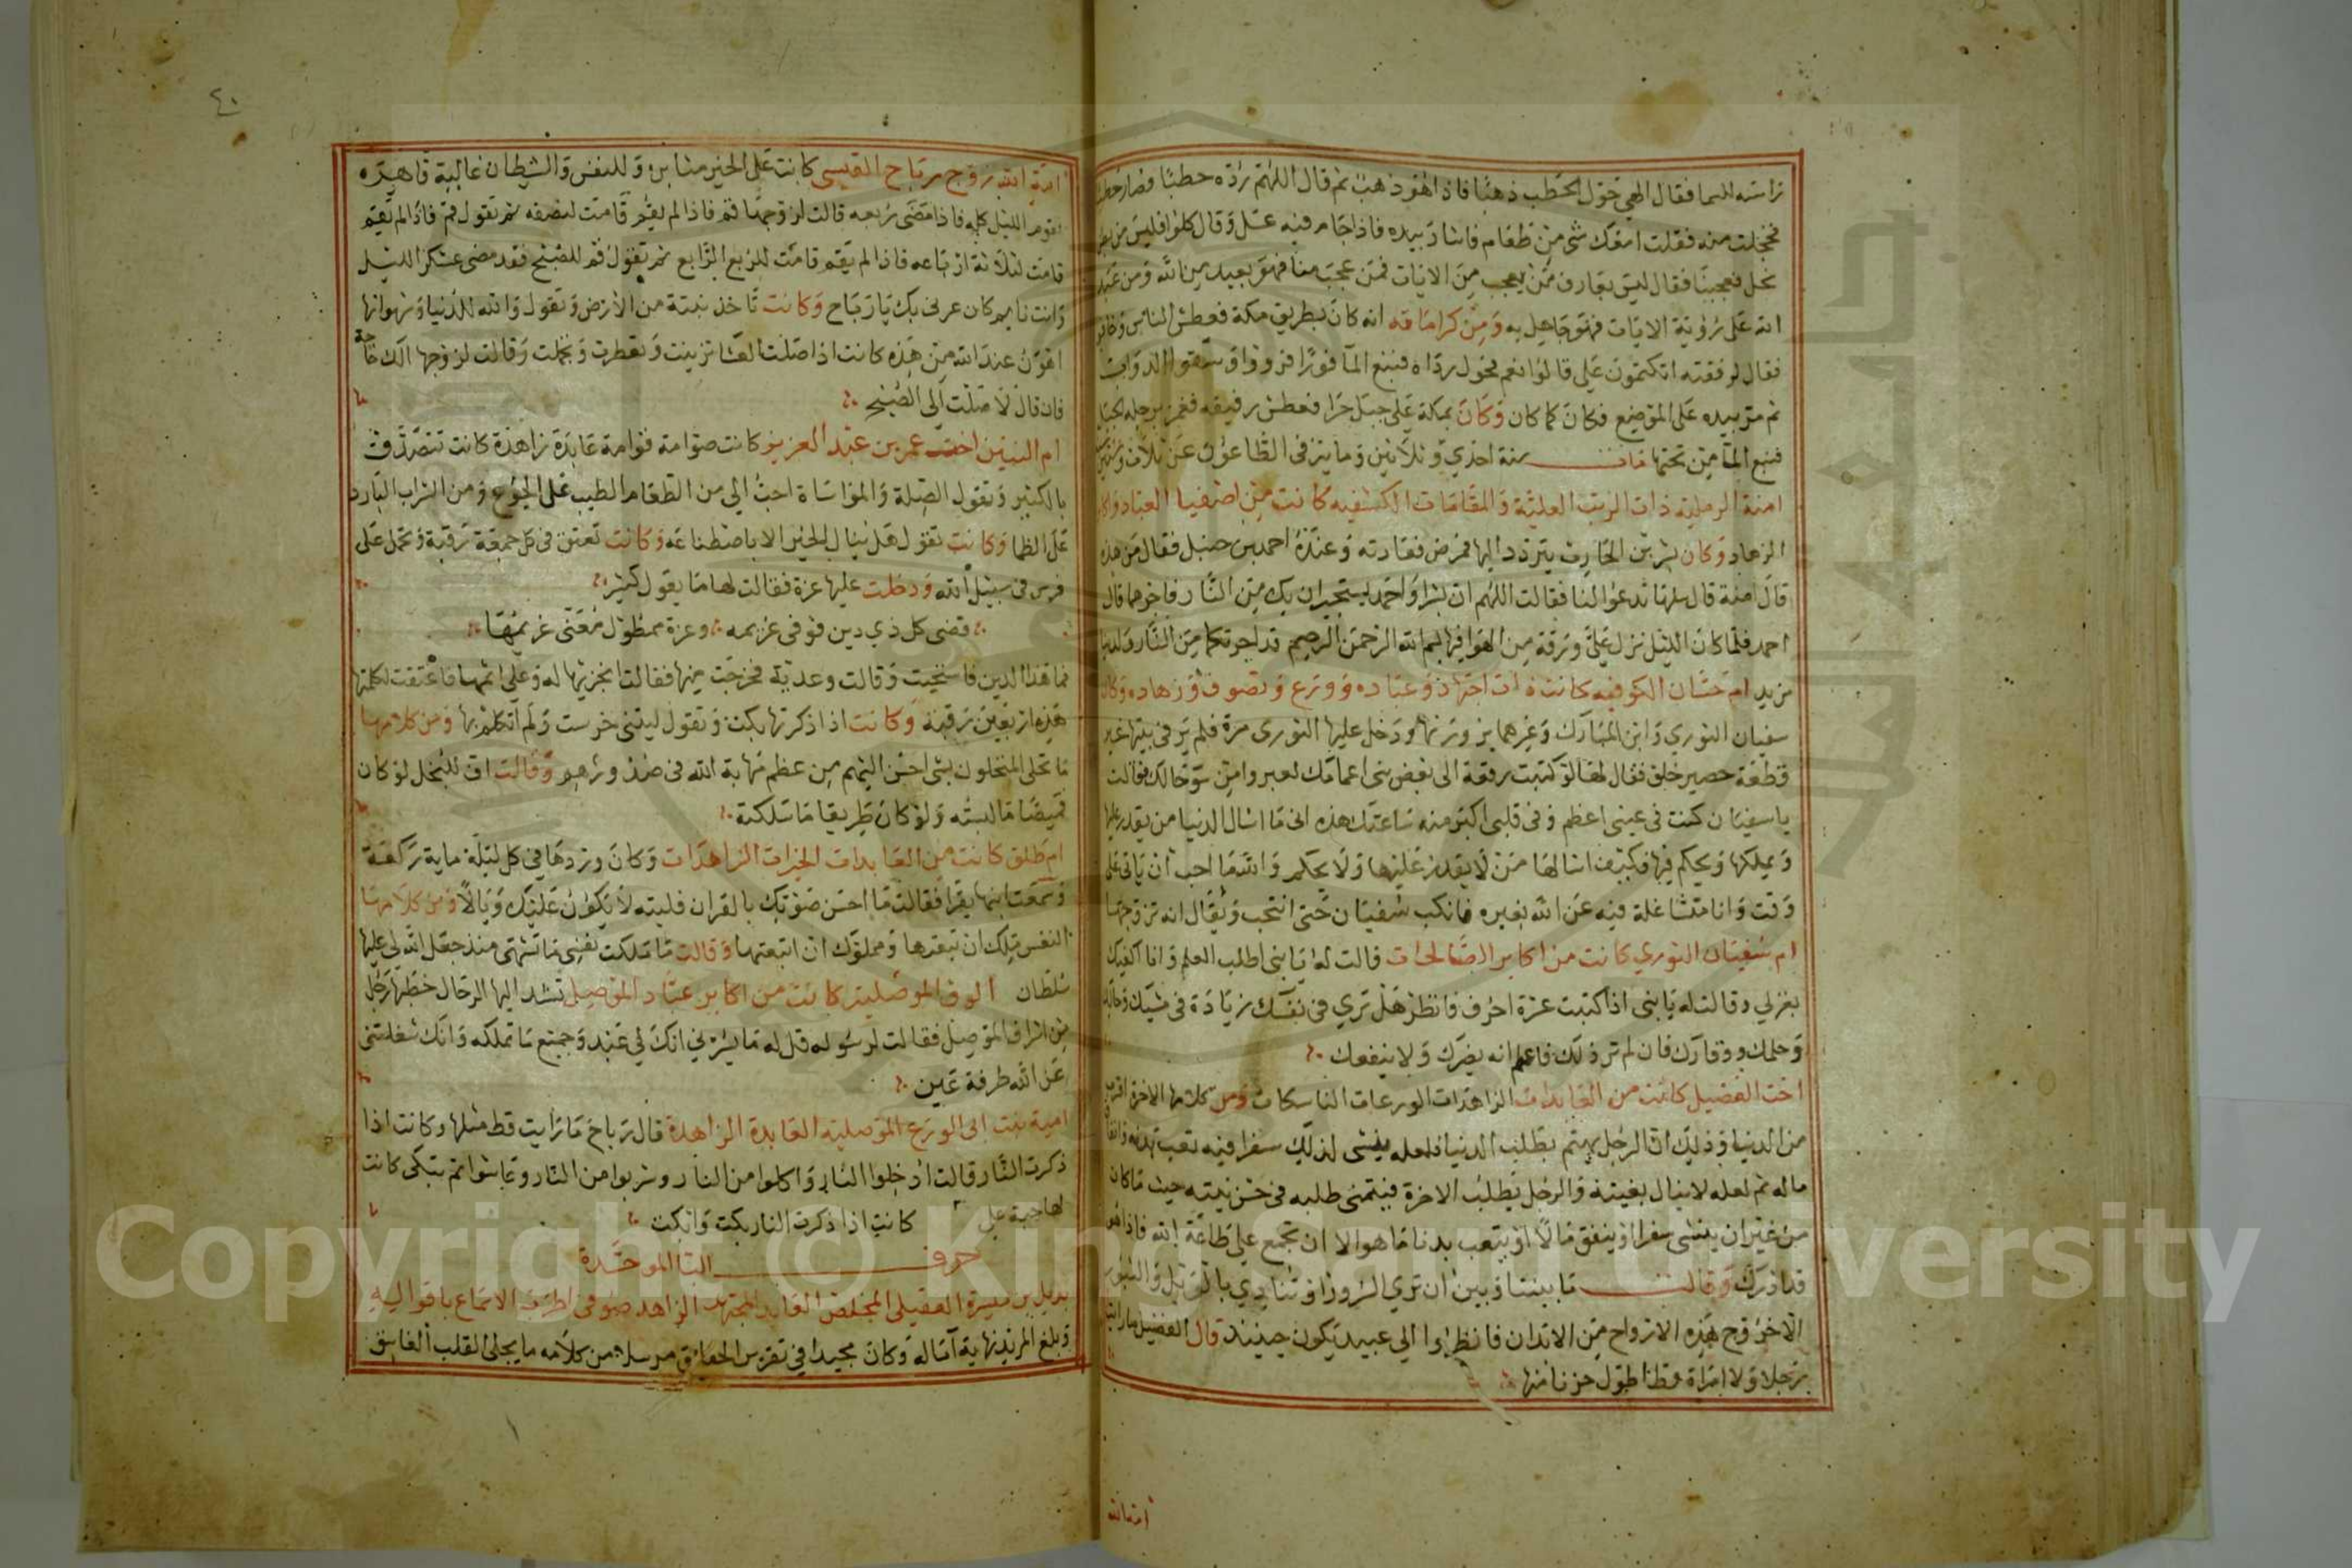 راسه للسما فقال الهي حول الحطب ذهبا فاذا هو ذهب ثم قال اللهم رده حطبا فصار حطبا
فخجلت منه فقلت امعك شي من طعام فاشار بيده فاذا جام فيه عسل وقال كلوا فليس من بطن
نحل فعجبنا فقال ليس بعارف من يعجب من الايات فمن عجب منا فهو بعيد من الله ومن عبد
الله على رؤية الايات فهو جاهل به ومن كراماته انه كان بطريق مكة فعطش الناس وخافوا
فقال لرفقته اتكتمون علي قالوا نعم فحول رداه فنبع الما فورا فرووا وسقوا الدواب
ثم مر بيده على الموضع فكان كما كان وكان بمكة على جبل حرا فعطش رفيقه فغمز برجله الجبل
فنبع الما من تحتها مات سنة احدي وثلاثين وماية في الطاعون عن ثلاث وستين
امنة الرملية ذات الرتب العلية والمقامات الكشفية كانت من اصفيا العباد واكابر
الزهاد وكان بشر بن الحارث يتردد اليها فمرض فعادته وعنده احمد بن حنبل فقال من هذه
قال امنة قال سلها تدعوا لنا فقالت اللهم ان بشرا واحمد يستجيران بك من النار فاجرهما قال
احمد فلما كان الليل نزل علي ورقة من الهوا فيها بسم الله الرحمن الرحيم قد اجرتكما من النار ولدينا
مزيد ام حسان الكوفيه كانت ذات اجتهاد وعباده وورع وتصوف وزهاده وكان
سفيان الثوري وابن المبارك وغيرهما يزورنها ودخل عليها الثوري مرة فلم ير في بيتها غير
قطعة حصير خلق فقال لها لو كتبت رقعة الى بعض بني اعمامك لغيروا من سؤ حالك فقالت
يا سفيان كنت في عيني اعظم وفي قلبي اكبر منه ساعتك هذه اني ما اسال الدنيا من يقدر عليها
ويملكها ويحكم فيها فكيف اسالها من لا يقدر عليها ولا يحكم والله ما احب ان ياتي علي
وقت وانا متشاغلة فيه عن الله بغيره فانكب سفيان حتى انتحب ويقال انه تزوجها
ام سفيان الثوري كانت من اكابر الصالحات قالت له يا بني اطلب العلم وانا اكفيك
بغزلي وقالت له يا بني اذا كتبت عشرة احرف فانظر هل تري في نفسك زيادة في مشيك
وحلمك ووقارك فان لم تر ذلك فاعلم انه يضرك ولا ينفعك
اخت الفضيل كانت من العابدات الزاهدات الورعات الناسكات ومن كلامها الاخرة اقرب
من الدنيا وذلك ان الرجل يهتم بطلب الدنيا فلعله ينشي لذلك سفرا فيه تعب بدنه وانفاق
ماله ثم لعله لا ينال بغيته والرجل يطلب الاخرة فينتهي طلبه في حسن نيته حيث ما كان
من غير ان ينشي سفرا او ينفق مالا او يتعب بدنا ما هو الا ان تجمع على طاعة الله فاذا هو
قد ادرك وقالت ما بيننا وبين ان نري السرور او ننادي بالويل والثبور
الا خروج هذه الارواح من الابدان فانظروا الي عبيد يكون حينئذ قال الفضيل ما رايت
رجلا ولا امراة قط اطول حزنا منها
امة الله
٤٠
امة الله زوج رباح القيسي كانت على الخير مثابرة وللنفس والشيطان غالبة قاهرة
تقوم الليل كله فاذا مضى ربعه قالت لزوجها قم فاذا لم يقم قامت لنصفه ثم تقول قم فاذا لم يقم
قامت لثلاثة ارباعه فاذا لم يقم قامت للربع الرابع ثم تقول قم للصبح فقد مضى عسكر الليل
وانت نايم كان غرني بك يا رباح وكانت تاخذ تبنة من الارض وتقول والله للدنيا وشهواتها
اهون عند الله من هذه كانت اذا صلت العشا تزينت وتعطرت وتجملت وقالت لزوجها الك حاجة
فان قال لا صلت الى الصبح
ام البنين اخت عمر بن عبد العزيز كانت صوامة قوامة عابدة زاهدة كانت تتصدق
بالكثير وتقول الصلة والمواساة احب الي من الطعام الطيب على الجوع ومن الشراب البارد
على الظما وكانت تقول هل ينال الخير الا باصطناعه وكانت تعتق في كل جمعة رقبة وتحمل على
فرس في سبيل الله ودخلت عليها عزة فقالت لها ما يقول كثير
قضى كل ذي دين فوفى غريمه وعزة ممطول معنى غريمها
فما هذا الدين فاستحيت وقالت وعدته فخرجت منها فقالت انجزيها له وعلي اثمها فاعتقت لكلمتها
هذه اربعين رقبة وكانت اذا ذكرتها بكت وتقول ليتني خرست ولم اتكلم بها ومن كلامها
ما تحلى المتحلون بشي احسن اليهم من عظم مهابة الله في صدورهم وقالت اف للبخل لو كان
قميصا ما لبسته ولو كان طريقا ما سلكته
ام طلق كانت من العابدات الخيرات الزاهدات وكان وردها في كل ليلة ماية ركعة
وسمعت ابنها يقرا فقالت ما احسن صوتك بالقران فليته لا يكون عليك وبالا ومن كلامها
النفس ملك ان تبعتها ومملوك ان اتبعتها وقالت ما ملكت نفسي ما تشتهي منذ جعل الله لي عليها
سلطان الوف الموصلية كانت من اكابر عباد الموصل تشد اليها الرحال خطبها رجل
من اشراف الموصل فقالت لرسوله قل له ما يسرني انك لي عبد وجميع ما تملكه وانك شغلتني
عن الله طرفة عين
امية بنت ابي الورع الموصلية العابدة الزاهدة قال رباح ما رايت قط مثلها وكانت اذا
ذكرت النار قالت ادخلوا النار واكلوا من النار وشربوا من النار وعاشوا ثم تبكي كانت
كانت اذا ذكرت النار بكت وابكت
حرف البا الموحدة
بديل بن ميسرة العقيلي المخلص العابد المجتهد الزاهد صوفي اطرب الاسماع باقواليه
وبلغ المريد نهاية آماله وكان مجيدا في تقرير الحقايق من كلامه ما يجلي القلب الفاسق
Copyright © King Saud University